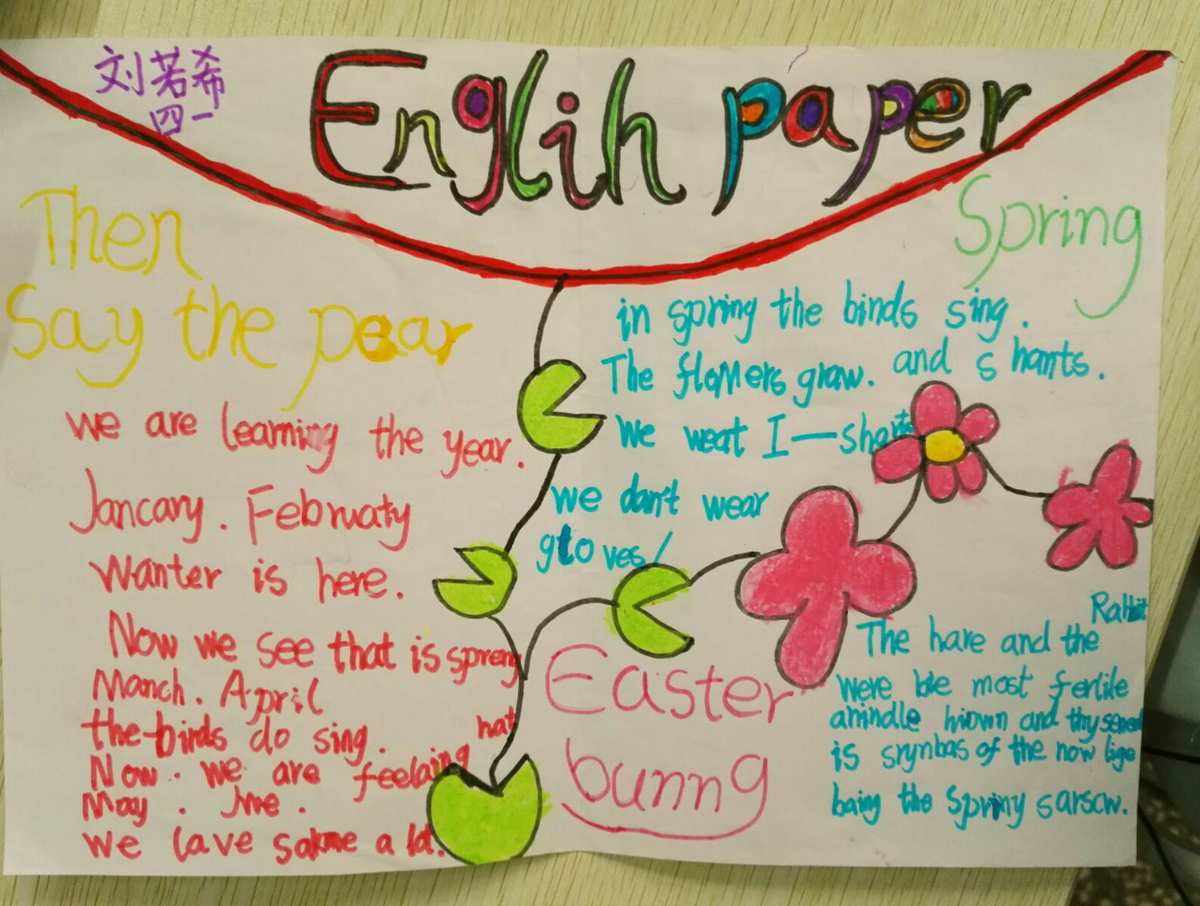 刘若希
四一
Englih paper
Then
Say the pear
we are learning the year.
Jancary. February
Wanter is here.
Now we see that is spreng
Manch. April
the birds do sing.
Now. we are feelaing hat
May. June.
we lave sakme a lot.
Spring
in spring the birds sing.
The flomers graw. and s hants.
We weat I—shorts
we dan't wear
gloves!
Easter
bunng
The hare and the Rabbit
were ble most ferlike
anindle hiown and thy serend
is srynbas of the now lige
baing the Spriny sarsaw.